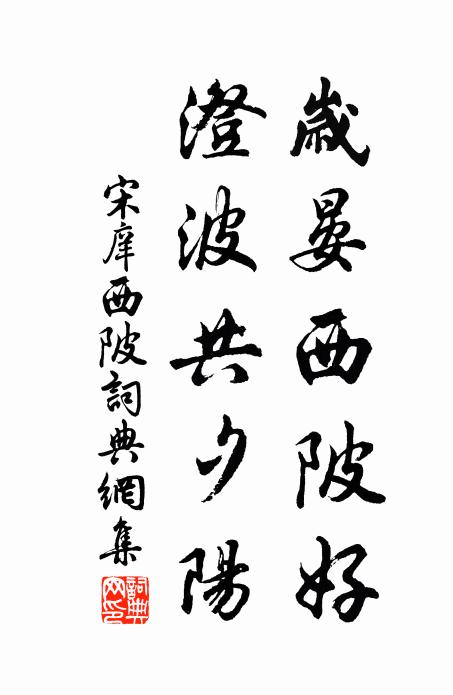 歲晏西陂好
澄波共夕陽
宋庠西陂詞典網集
詞典網印